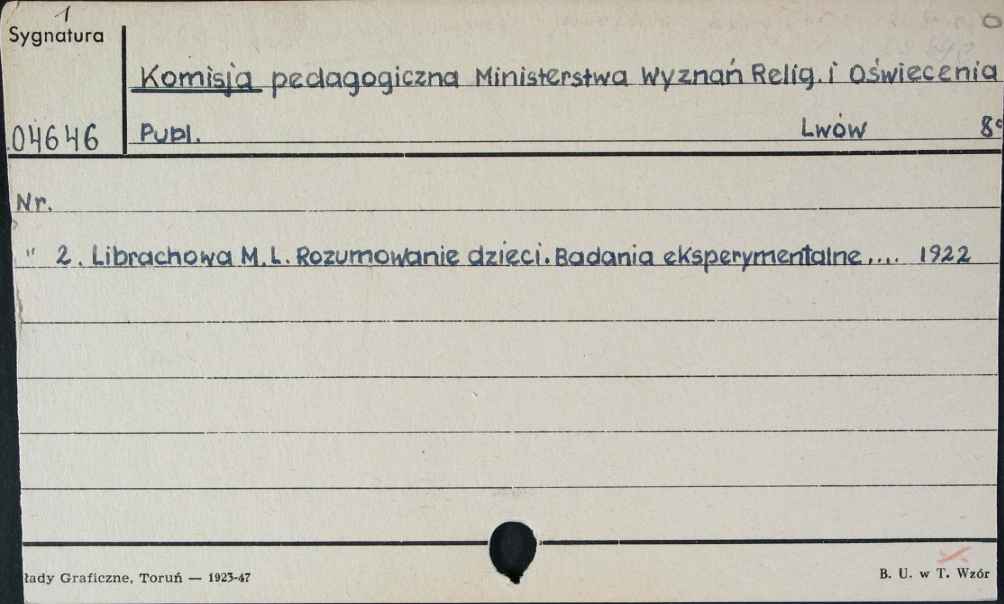 1
Sygnatura
Komisja pedagogiczna Ministerstwa Wyznań Relig. i Oświecenia
04646
Publ. Lwów 8°
Nr.
" 2. Librachowa M. L. Rozumowanie dzieci. Badania eksperymentalne.... 1922
łady Graficzne, Toruń — 1923-47
B. U. w T. Wzór